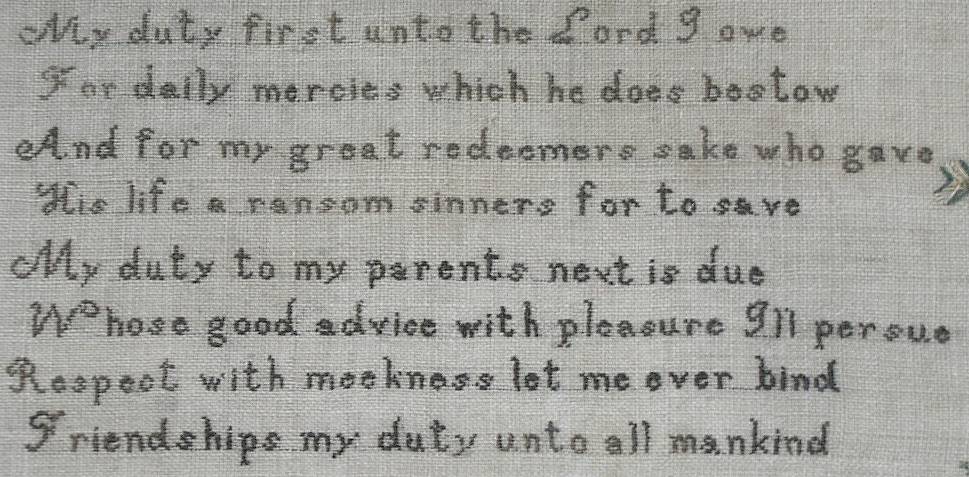 My duty first unto the Lord I owe
For daily mercies which he does bestow
And for my great redeemers sake who gave
His life a ransom sinners for to save
My duty to my parents next is due
Whose good advice with pleasure Ill persue
Respect with meekness let me ever bind
Friendships my duty unto all mankind